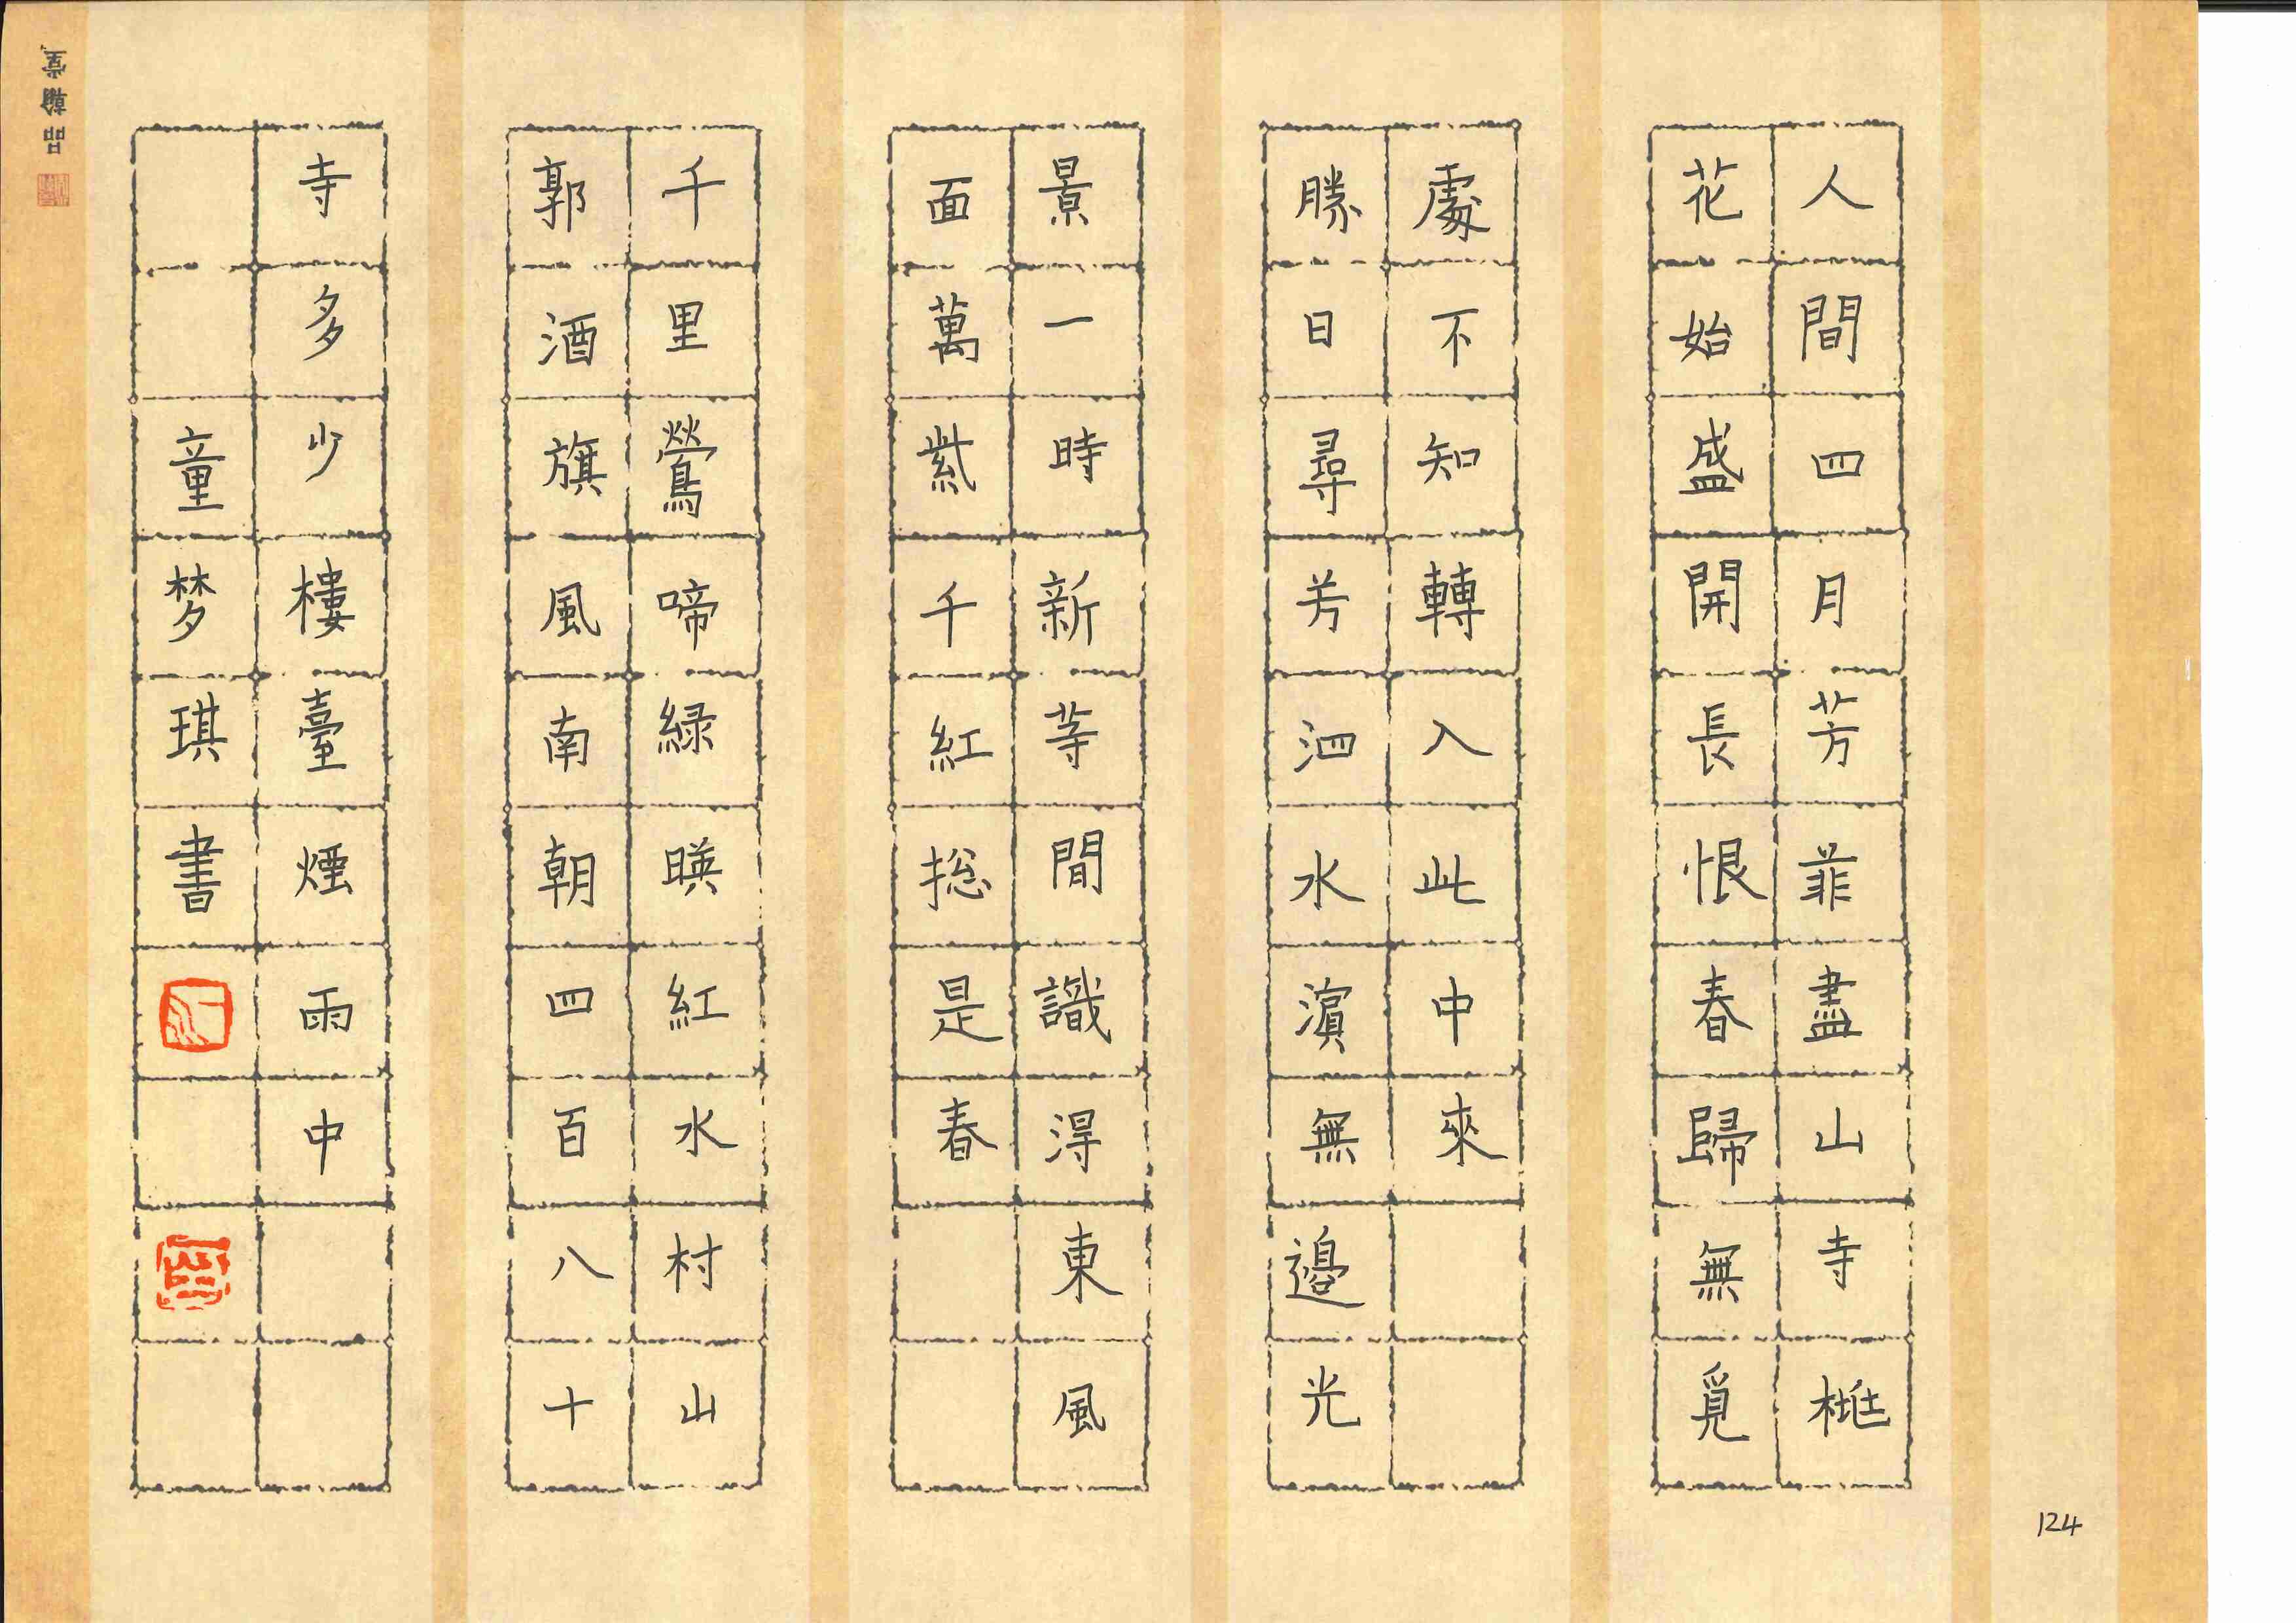 人間四月芳菲盡山寺桃
花始盛開長恨春歸無覓
處不知轉入此中來
勝日尋芳泗水濱無邊光
景一時新等閒識得東風
面萬紫千紅總是春
千里鶯啼綠暎紅水村山
郭酒旗風南朝四百八十
寺多少樓臺煙雨中
童梦琪書
品翰堂
124